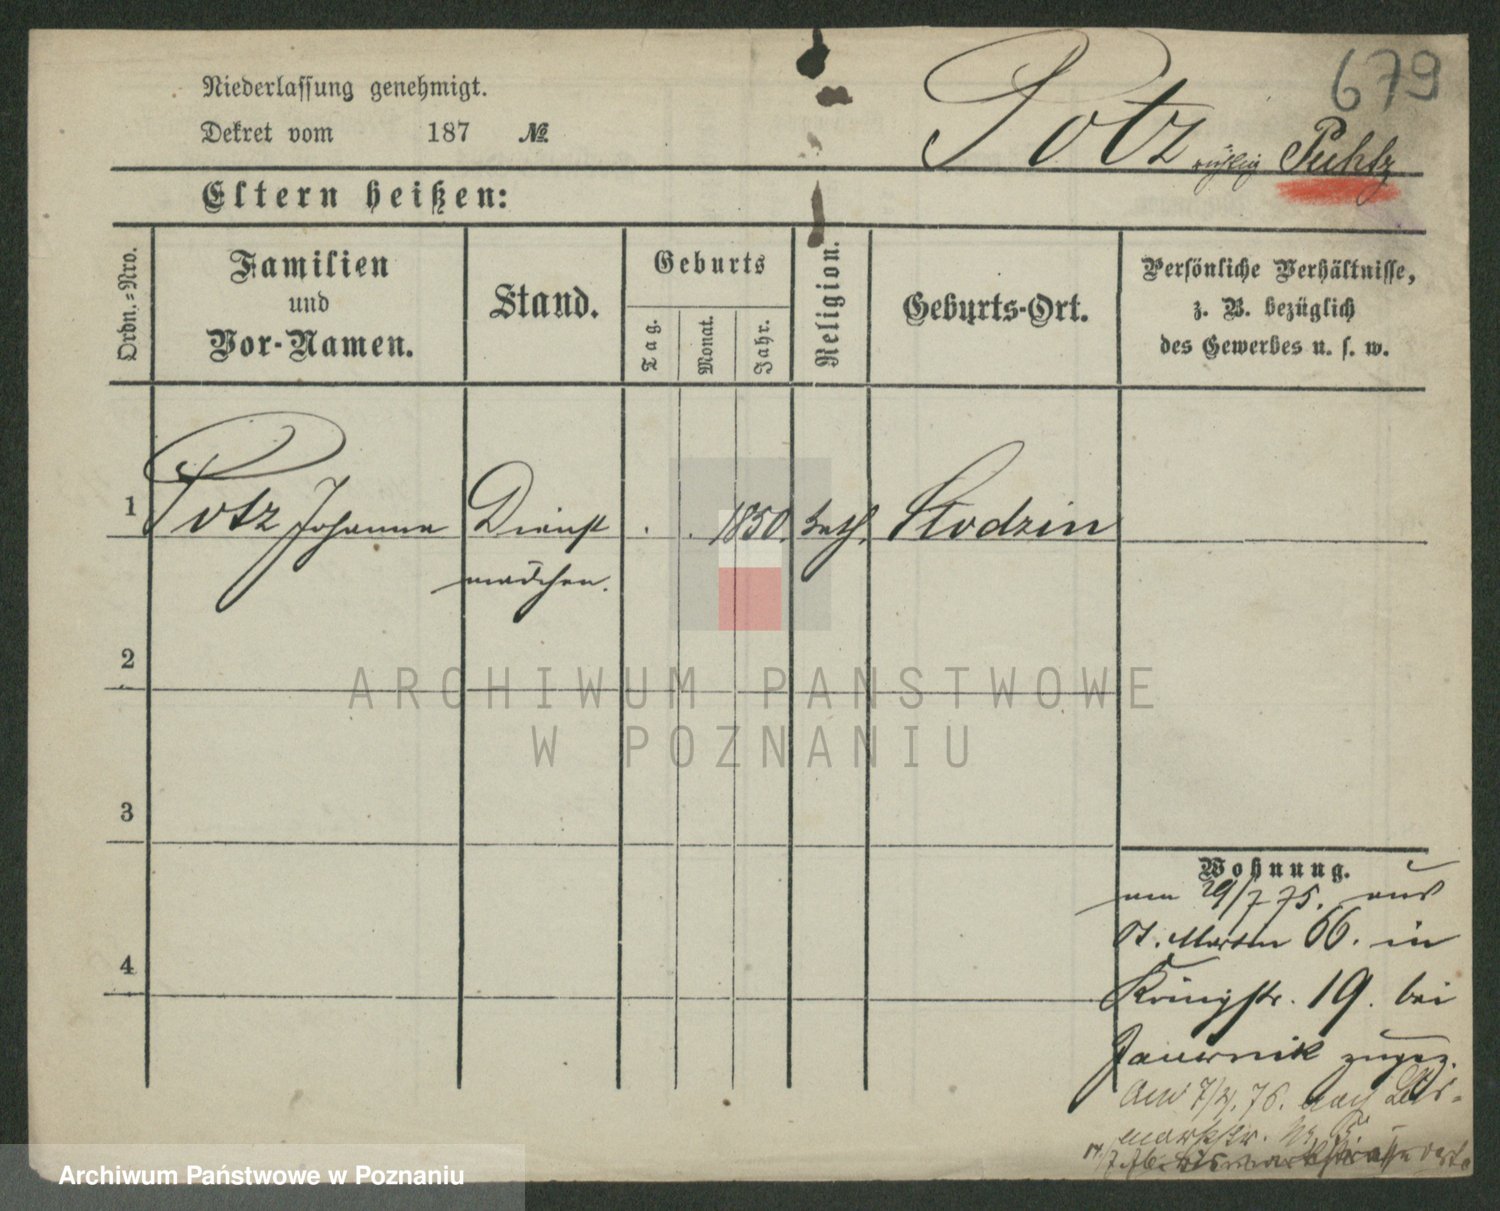 679
Niederlassung genehmigt.
Dekret vom 187 №
Potz richtig Puhtz
Eltern heißen:
Ordn.=Nro.
Familien
und
Vor-Namen.
Stand.
Geburts
Tag.
Monat.
Jahr.
Religion.
Geburts-Ort.
Persönliche Verhältnisse,
z. B. bezüglich
des Gewerbes u. s. w.
1 Potz Johanna Dienst . . 1850. kath. Slodzin
mädchen.
2
3
4
Wohnung.
am 29/7 75. aus
St. Martin 66. in
Königstr. 19. bei
Jauernik zugez.
Am 7/4. 76. nach Bis-
markstr. No 5
ARCHIWUM PAŃSTWOWE
W POZNANIU
Archiwum Państwowe w Poznaniu